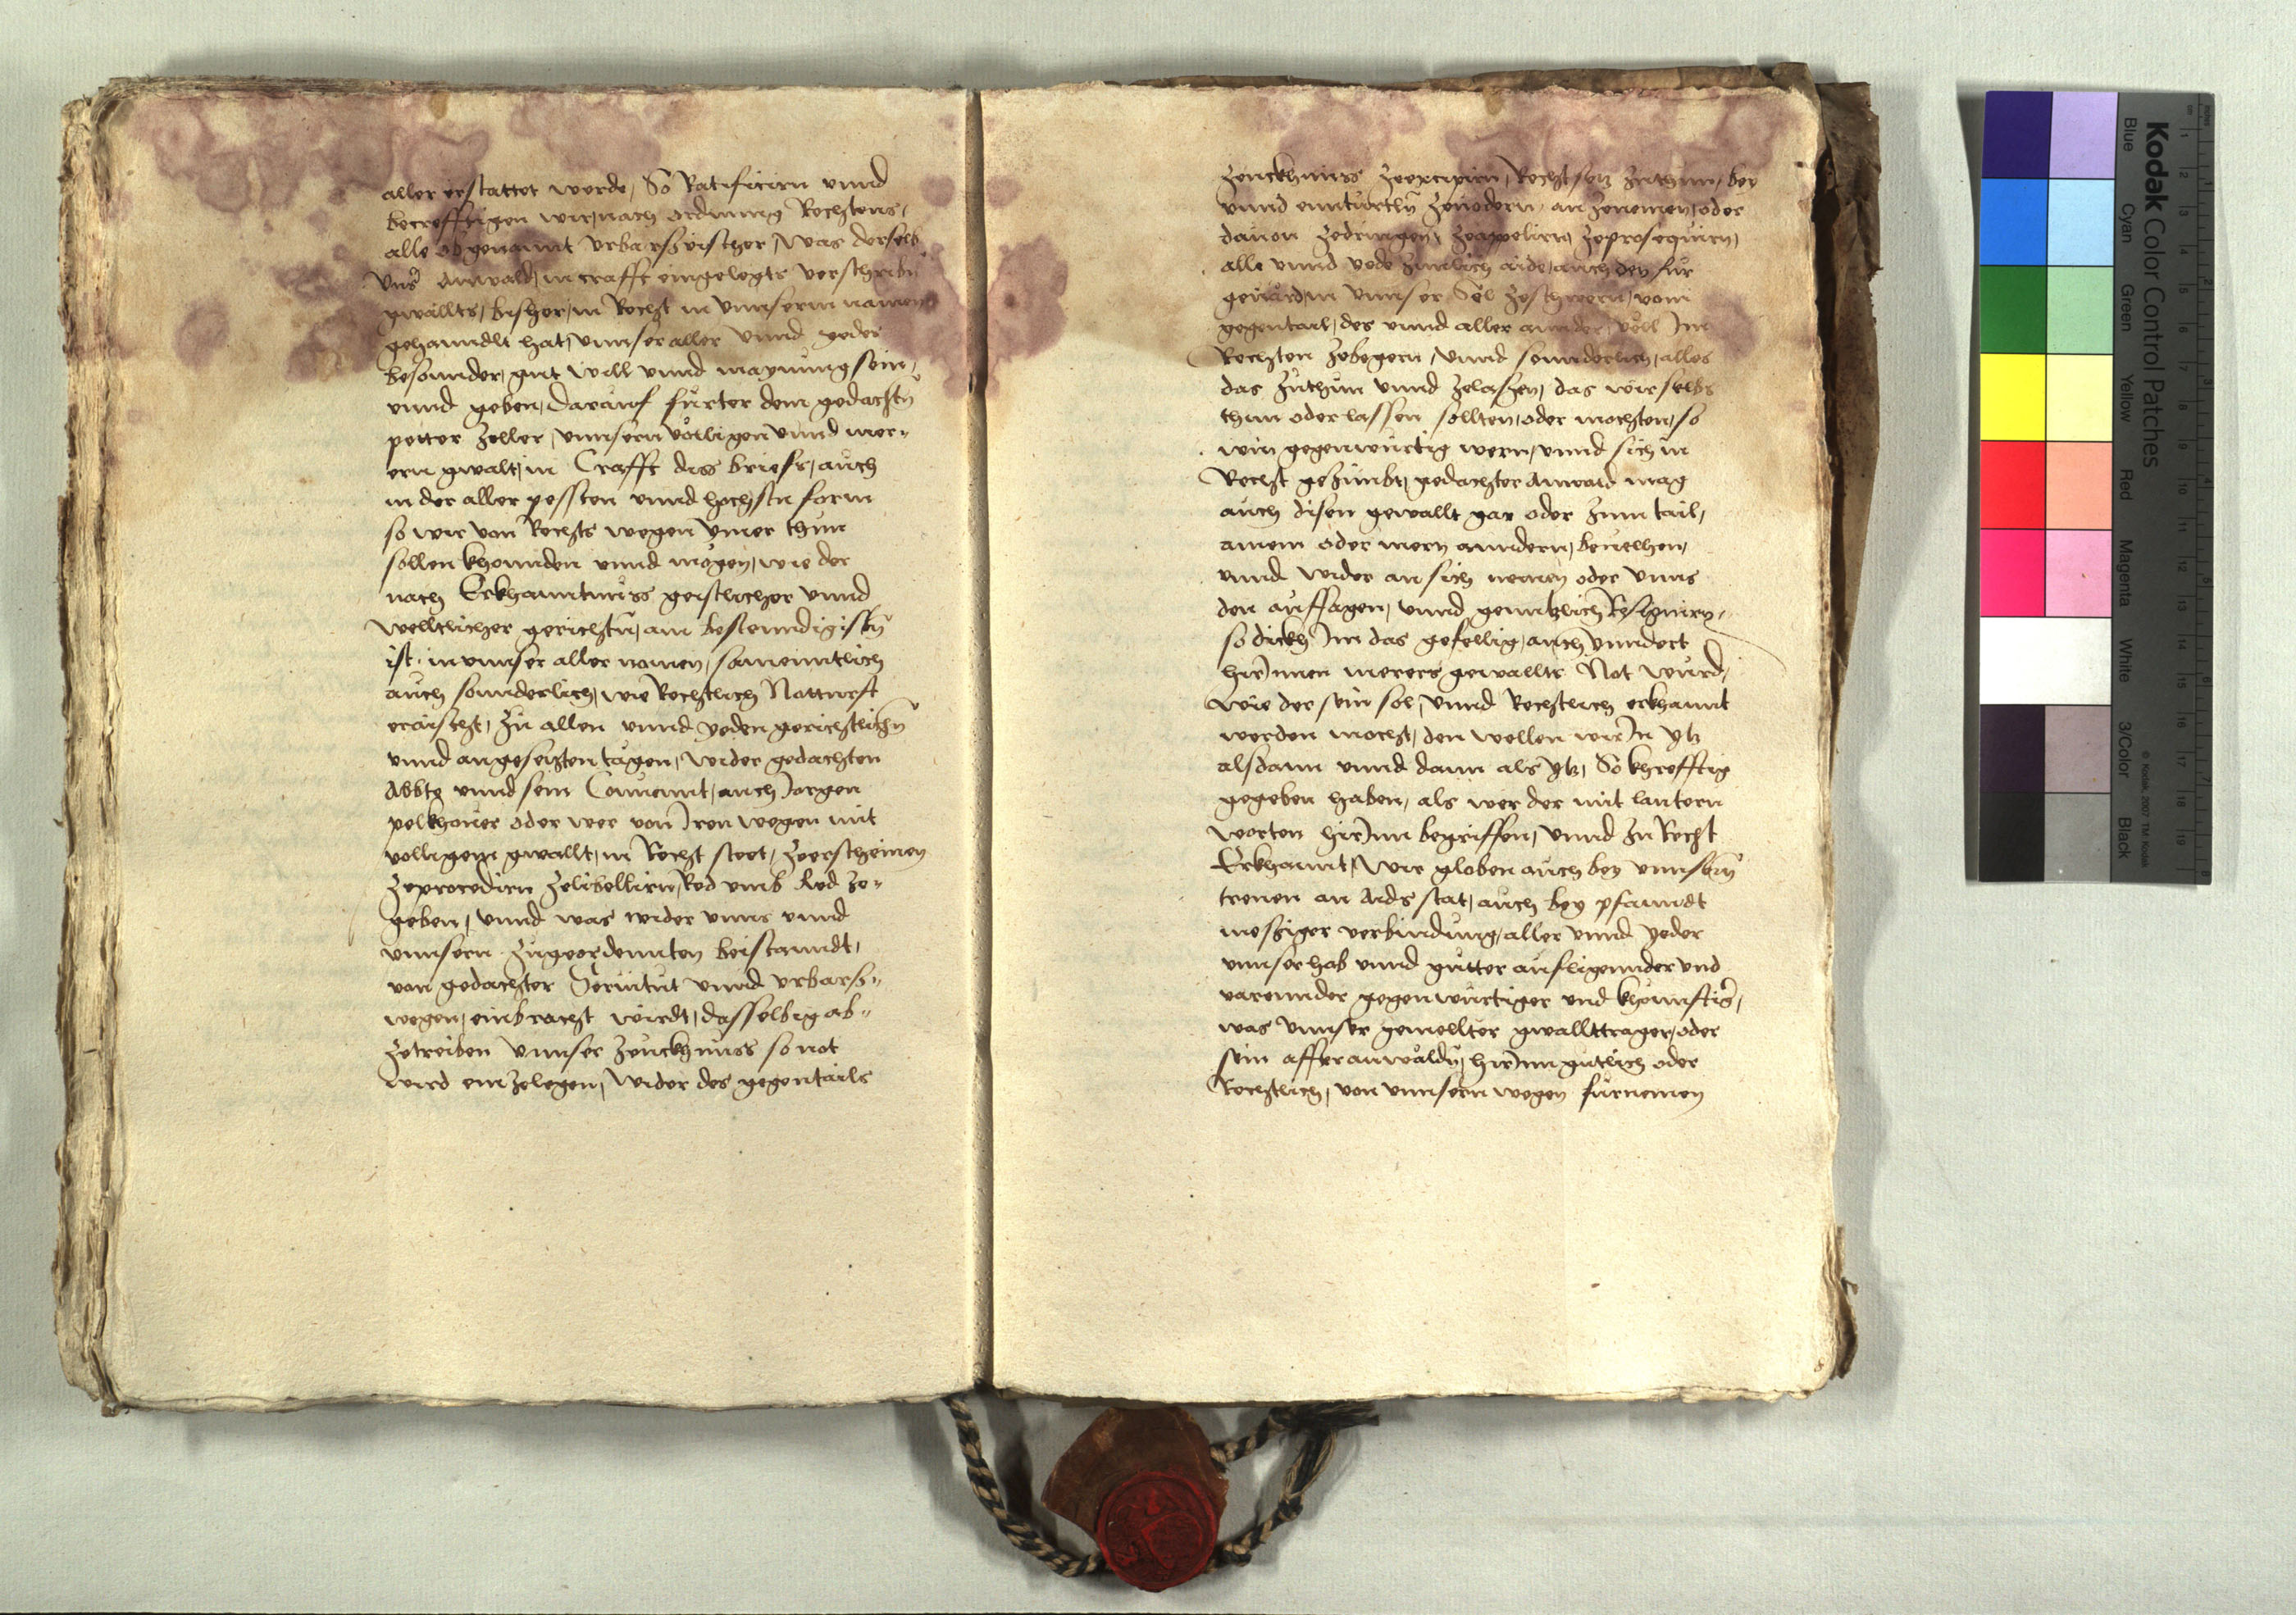 aller erstattet werde, So Ratificirn vnnd
becrefftigen wir, nach ordnung Rechtens,
alle obgenannt vrbarsvischer, was derselb
vnser Anwald, in crafft eingelegts verschribn
gwallts, bisher, in Recht in vnnserm namen
gehanndlt hat, vnnser aller vnnd yeder
besonnder, gut will vnnd maynung sein,
vnnd geben, Darauf fürter dem gedachtn
petter Zeller, vnnsern völligen vnnd mer„
ern gwalt, in Crafft diss briefs, auch
in der aller pessten vnnd hochstn form
so wir von Rechts wegen ymer thun
sollen khonnden vnnd mögen, wie der
nach Erkhanntnuss geistlicher vnnd
welltlicher gerichtn, am bestenndigistn
ist. in vnnser aller namen, samenntlich
auch sonnderlich, wie Rechtlich Notturft
eraischt, Zu allen vnnd yeden gerichtlichn
vnnd angesetzten tägen, wider gedachten
Abbte vnnd sein Conuennt, auch Jorgen
pelkhouer oder wer von Jren wegen mit
volligem gwallt, in Recht steet, Zuerscheinen
Zeprocedirn Zelibellirn, Red vmb Red ze„
geben, vnnd was wider vnns vnnd
vnnsern Zugeordennten beistanndt,
von gedachter Seruitut vnnd vrbars„
wegen, einbracht wirdt, dasselbig ab„
Zetreiben vnnser Zeuckhnuss so not
wird einzelegen, wider des gegentails
Zeuckhnuss Zeexcipirn, Rechtsetz Zuthun, bey
vnnd enndturtln Zeuodern, an Zenemen, oder
dauon Zedringen, Zeappelirn Zeprosequirn,
alle vnnd yede Zimlich aide, auch den fur
geuärd, in vnnser Sel Zeschwern, vom
gegentail, des vnnd aller annder, voll Jm
Rechten Zebegern, vnnd sonnderlich, alles
das Zuthun vnnd Zelassen, das wir selbs
thun oder lassen sollten, oder mochten, so
wir gegenwurtig wern, vnnd sich in
Recht gezimbt, gedachter Anwald mag
auch disen gewallt gar oder Zum tail,
ainem oder mern anndern, beuelhen,
vnnd wider an sich nemen oder vnns
den auffsagen, vnnd genntzlich Resignirn,
so dickh Jm das gefellig, auch vnndert
hirJnnen merers gewallts Not wurd,
wie der sein sol, vnnd Rechtlich erkhannt
werden mocht, den wellen wir Jn ytz
alsdann vnnd dann als ytz, So khrefftig
gegeben haben, als wer der mit lautern
worten hirJnn begriffen, vnnd Zu Recht
Erkhannt, Wir globen auch bey vnnsern
treuen an Aids stat, auch bey pfanndt
messiger verbindung, aller vnnd yeder
vnnser hab vnnd gutter aufligennder vnd
varennder gegenwurtiger vnd khonnftiger,
was vnnser gemellter gwallttrager, oder
sein affter anwäldn, hirJnn gutlich oder
Rechtlich, von vnnsern wegen furnemen
Kodak Color Control Patches
Blue
Cyan
Green
Yellow
Red
Magenta
White
3/Color
Black
© Kodak, 2007 TM: Kodak